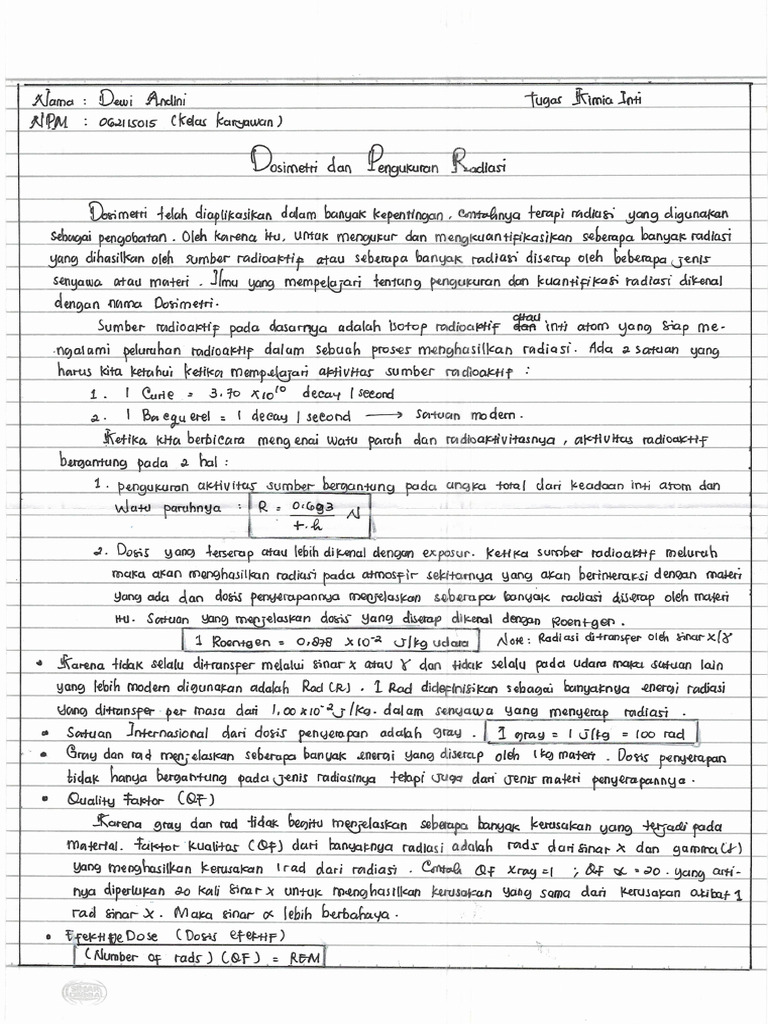 Nama : Dewi Andini Tugas Kimia Inti
NPM : 062115015 (Kelas Karyawan)
Dosimetri dan Pengukuran Radiasi
Dosimetri telah diaplikasikan dalam banyak kepentingan, contohnya terapi radiasi yang digunakan
sebagai pengobatan. Oleh karena itu, untuk mengukur dan mengkuantifikasikan seberapa banyak radiasi
yang dihasilkan oleh sumber radioaktif atau seberapa banyak radiasi diserap oleh beberapa jenis
senyawa atau materi. Ilmu yang mempelajari tentang pengukuran dan kuantifikasi radiasi dikenal
dengan nama Dosimetri.
Sumber radioaktif pada dasarnya adalah isotop radioaktif atau inti atom yang siap me-
ngalami peluruhan radioaktif dalam sebuah proses menghasilkan radiasi. Ada 2 satuan yang
harus kita ketahui ketika mempelajari aktivitas sumber radioaktif :
1. 1 Curie = 3.70 x 10¹⁰ decay / second
2. 1 Baequerel = 1 decay / second → satuan modern.
Ketika kita berbicara mengenai watu paruh dan radioaktivitasnya, aktivitas radioaktif
bergantung pada 2 hal :
1. pengukuran aktivitas sumber bergantung pada angka total dari keadaan inti atom dan
watu paruhnya : R = 0.693 / t.h N
2. Dosis yang terserap atau lebih dikenal dengan exposur. Ketika sumber radioaktif meluruh
maka akan menghasilkan radiasi pada atmosfir sekitarnya yang akan berinteraksi dengan materi
yang ada dan dosis penyerapannya menjelaskan seberapa banyak radiasi diserap oleh materi
itu. Satuan yang menjelaskan dosis yang diserap dikenal dengan Roentgen.
1 Roentgen = 0,878 x 10⁻² J/kg udara Note: Radiasi ditransfer oleh sinar X/γ
• Karena tidak selalu ditransper melalui sinar x atau γ dan tidak selalu pada udara maka satuan lain
yang lebih modern digunakan adalah Rad (R). 1 Rad didefinisikan sebagai banyaknya energi radiasi
yang ditransper per masa dari 1,00 x 10⁻² J/kg. dalam senyawa yang menyerap radiasi.
• Satuan Internasional dari dosis penyerapan adalah gray. 1 gray = 1 J/kg = 100 rad
• Gray dan rad menjelaskan seberapa banyak energi yang diserap oleh 1 kg materi. Dosis penyerapan
tidak hanya bergantung pada jenis radiasinya tetapi juga dari jenis materi penyerapannya.
• Quality Faktor (QF)
Karena gray dan rad tidak begitu menjelaskan seberapa banyak kerusakan yang terjadi pada
material. Faktor kualitas (QF) dari banyaknya radiasi adalah rads dari sinar X dan gamma (γ)
yang menghasilkan kerusakan 1 rad dari radiasi. Contoh QF xray = 1 ; QF α = 20. yang arti-
nya diperlukan 20 kali sinar X untuk menghasilkan kerusakan yang sama dari kerusakan akibat 1
rad sinar X. Maka sinar α lebih berbahaya.
• Efektife Dose (Dosis efektif)
(Number of rads) (QF) = REM